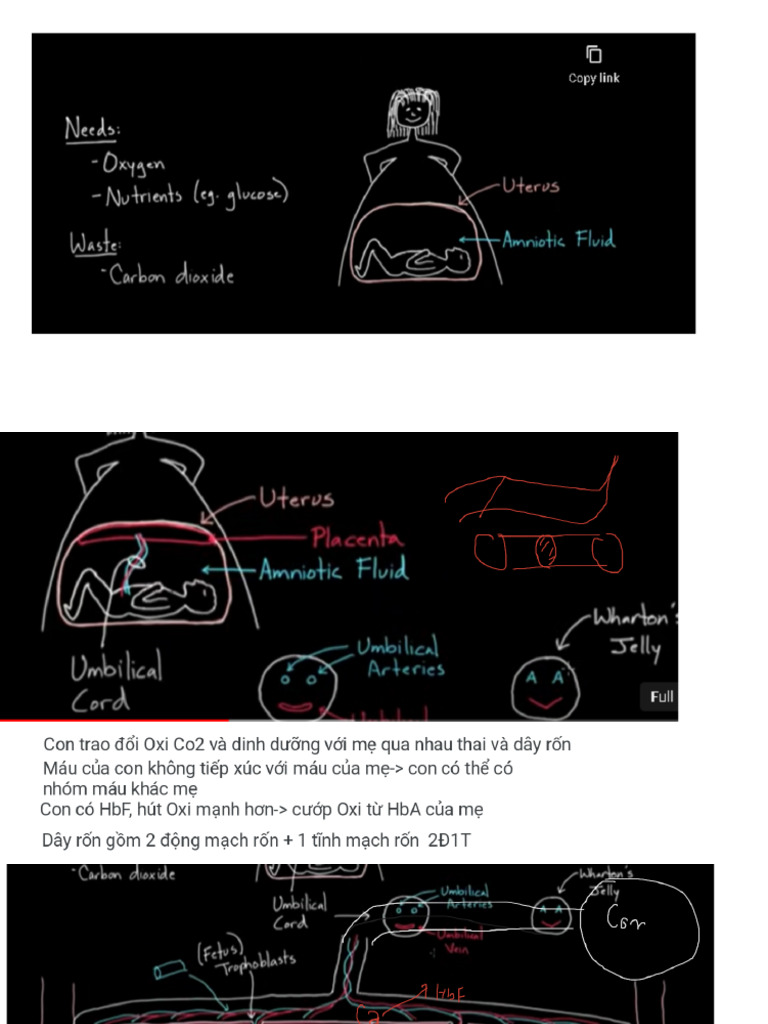 Copy link
Needs:
- Oxygen
- Nutrients (eg. glucose)
Uterus
Waste:
Amniotic Fluid
- Carbon dioxide
Uterus
Placenta
Amniotic Fluid
Wharton's
Jelly
Umbilical
Arteries
Umbilical
Cord
A A
Full
Con trao đổi Oxi Co2 và dinh dưỡng với mẹ qua nhau thai và dây rốn
Máu của con không tiếp xúc với máu của mẹ-> con có thể có
nhóm máu khác mẹ
Con có HbF, hút Oxi mạnh hơn-> cướp Oxi từ HbA của mẹ
Dây rốn gồm 2 động mạch rốn + 1 tĩnh mạch rốn 2Đ1T
- Carbon dioxide
Wharton's
Jelly
Umbilical
Arteries
Umbilical
Cord
A A
Con
Umbilical
Vein
(Fetus)
Trophoblasts
HbF